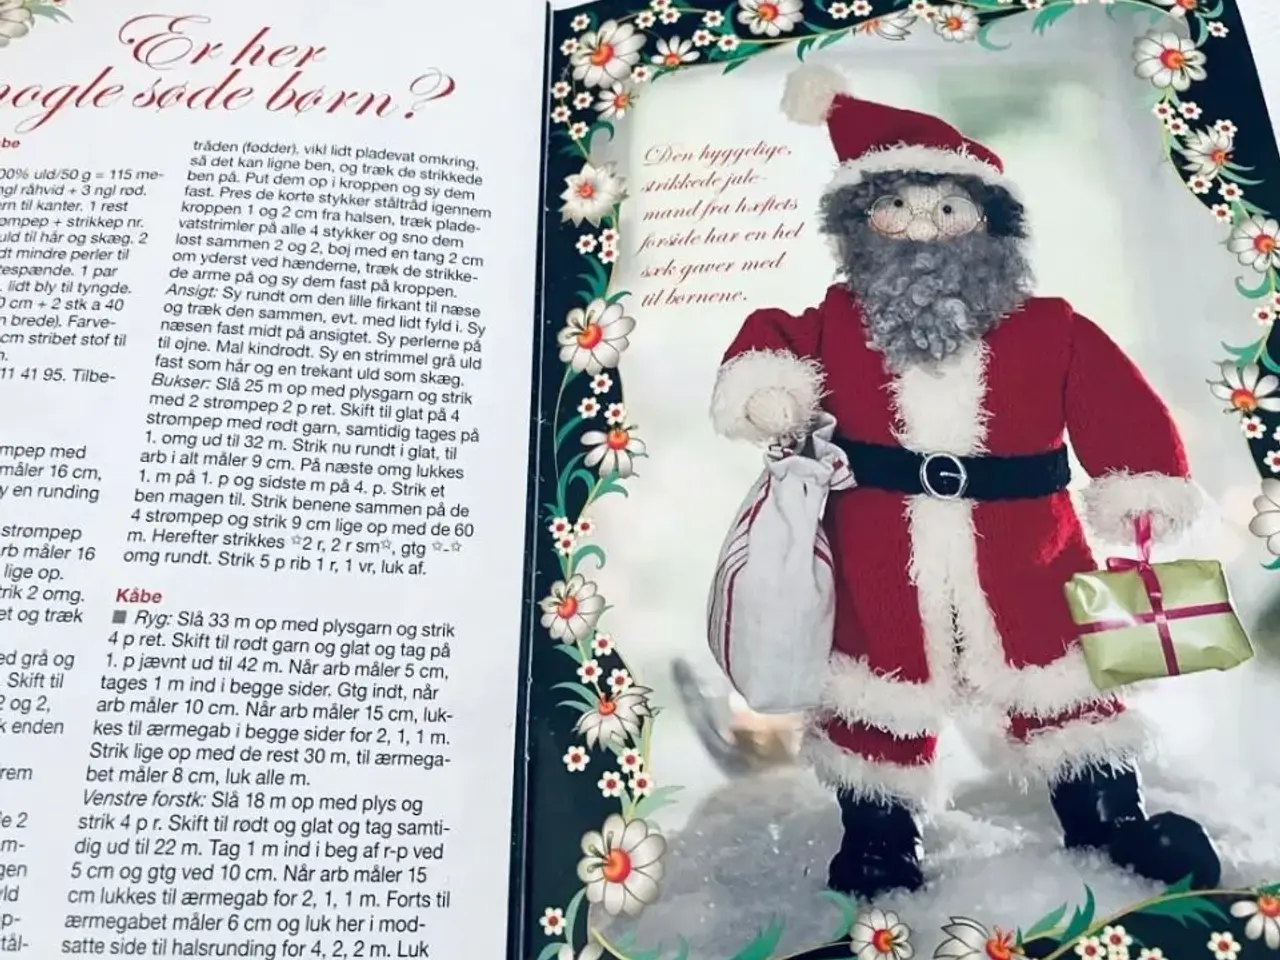 Er her
nogle søde børn?
100% uld/50 g = 115 me-
ngl råhvid + 3 ngl rød.
til kanter. 1 rest
+ strikkep nr.
uld til hår og skæg. 2
mindre perler til
1 par
lidt bly til tyngde.
cm + 2 stk a 40
brede). Farve-
cm stribet stof til
11 41 95. Tilbe-
med
måler 16 cm,
en runding
strømpep
arb måler 16
lige op.
strik 2 omg.
et og træk
grå og
Skift til
2 og 2,
enden
tråden (fødder), vikl lidt pladevat omkring,
så det kan ligne ben, og træk de strikkede
ben på. Put dem op i kroppen og sy dem
fast. Pres de korte stykker ståltråd igennem
kroppen 1 og 2 cm fra halsen, træk plade-
vatstrimler på alle 4 stykker og sno dem
løst sammen 2 og 2, bøj med en tang 2 cm
om yderst ved hænderne, træk de strikke-
de arme på og sy dem fast på kroppen.
Ansigt: Sy rundt om den lille firkant til næse
og træk den sammen, evt. med lidt fyld i. Sy
næsen fast midt på ansigtet. Sy perlerne på
til øjne. Mal kindrødt. Sy en strimmel grå uld
fast som hår og en trekant uld som skæg.
Bukser: Slå 25 m op med plysgarn og strik
med 2 strømpep 2 p ret. Skift til glat på 4
strømpep med rødt garn, samtidig tages på
1. omg ud til 32 m. Strik nu rundt i glat, til
arb i alt måler 9 cm. På næste omg lukkes
1. m på 1. p og sidste m på 4. p. Strik et
ben magen til. Strik benene sammen på de
4 strømpep og strik 9 cm lige op med de 60
m. Herefter strikkes ☆2 r, 2 r sm☆, gtg ☆-☆
omg rundt. Strik 5 p rib 1 r, 1 vr, luk af.
Kåbe
■ Ryg: Slå 33 m op med plysgarn og strik
4 p ret. Skift til rødt garn og glat og tag på
1. p jævnt ud til 42 m. Når arb måler 5 cm,
tages 1 m ind i begge sider. Gtg indt, når
arb måler 10 cm. Når arb måler 15 cm, luk-
kes til ærmegab i begge sider for 2, 1, 1 m.
Strik lige op med de rest 30 m, til ærmega-
bet måler 8 cm, luk alle m.
Venstre forstk: Slå 18 m op med plys og
strik 4 p r. Skift til rødt og glat og tag samti-
dig ud til 22 m. Tag 1 m ind i beg af r-p ved
5 cm og gtg ved 10 cm. Når arb måler 15
cm lukkes til ærmegab for 2, 1, 1 m. Forts til
ærmegabet måler 6 cm og luk her i mod-
satte side til halsrunding for 4, 2, 2 m. Luk
Den hyggelige,
strikkede jule-
mand fra hæftets
forside har en hel
sæk gaver med
til børnene.